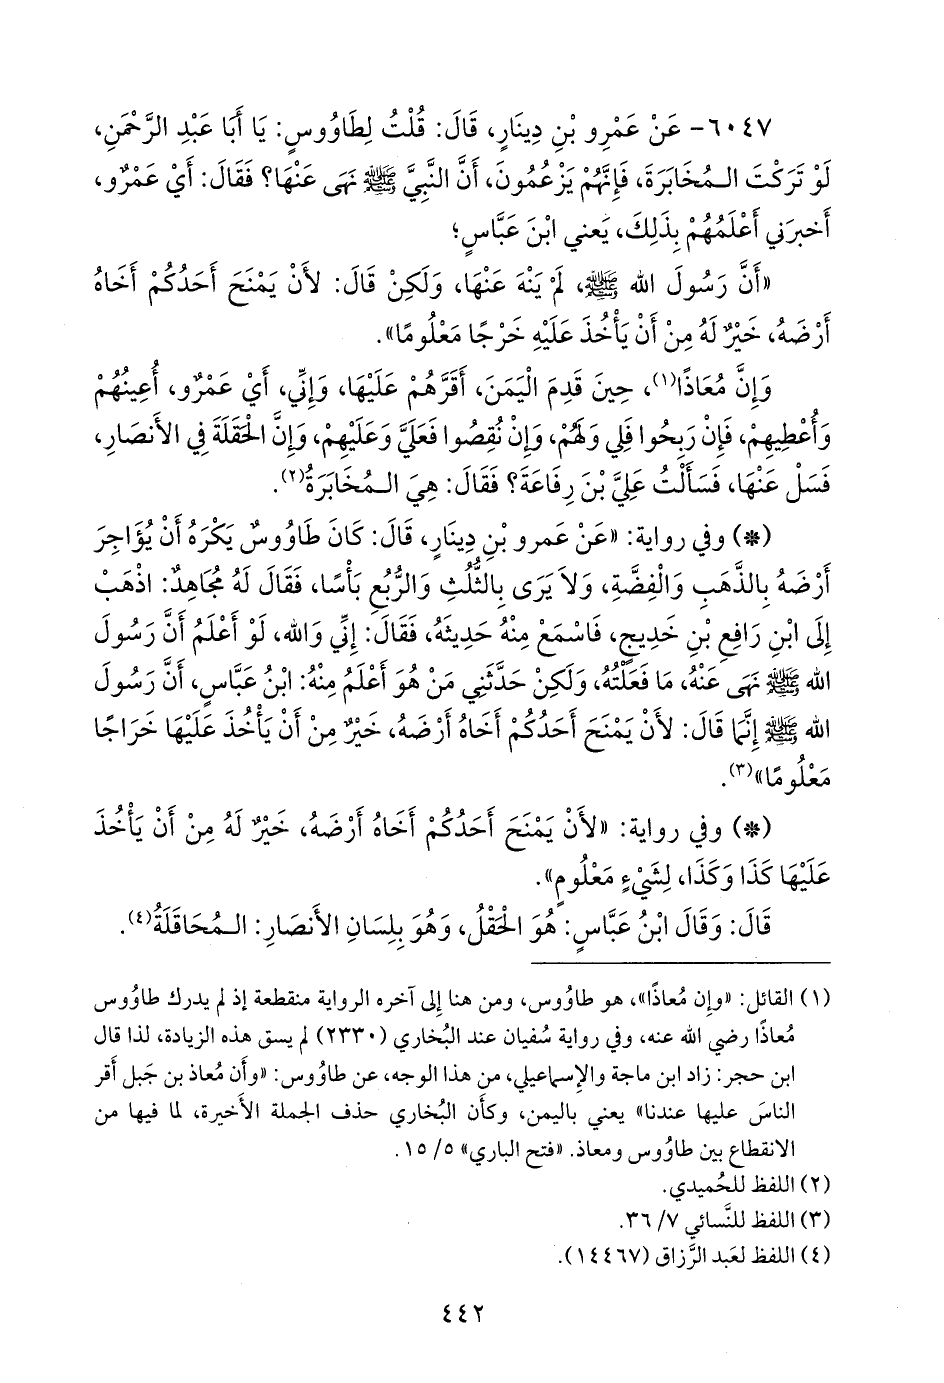 ٦٠٤٧- عَنْ عَمْرِو بْنِ دِينَارٍ، قَالَ: قُلْتُ لِطَاوُوسٍ: يَا أَبَا عَبْدِ الرَّحْمَنِ،
لَوْ تَرَكْتَ الـمُخَابَرَةَ، فَإِنَّهُمْ يَزْعُمُونَ، أَنَّ النَّبِيَّ ﷺ نَهَى عَنْهَا؟ فَقَالَ: أَيْ عَمْرُو،
أَخبرَني أَعْلَمُهُمْ بِذَلِكَ، يَعني ابْنَ عَبَّاسٍ؛
«أَنَّ رَسُولَ الله ﷺ، لَمْ يَنْهَ عَنْهَا، وَلَكِنْ قَالَ: لأَنْ يَمْنَحَ أَحَدُكُمْ أَخَاهُ
أَرْضَهُ، خَيْرٌ لَهُ مِنْ أَنْ يَأْخُذَ عَلَيْهِ خَرْجًا مَعْلُومًا».
وَإِنَّ مُعَاذًا(١)، حِينَ قَدِمَ الْيَمَنَ، أَقَرَّهُمْ عَلَيْهَا، وَإِنِّي، أَيْ عَمْرُو، أُعِينُهُمْ
وَأُعْطِيهِمْ، فَإِنْ رَبِحُوا فَلِي وَلَهُمْ، وَإِنْ نُقِصُوا فَعَلَيَّ وَعَلَيْهِمْ، وَإِنَّ الْحَقْلَةَ فِي الأَنصَارِ،
فَسَلْ عَنْهَا، فَسَأَلْتُ عَلِيَّ بْنَ رِفَاعَةَ؟ فَقَالَ: هِيَ الـمُخَابَرَةُ(٢).
(*) وفي رواية: «عَنْ عَمرِو بْنِ دِينَارٍ، قَالَ: كَانَ طَاوُوسٌ يَكْرَهُ أَنْ يُؤَاجِرَ
أَرْضَهُ بِالذَّهَبِ وَالْفِضَّةِ، وَلاَ يَرَى بِالثُّلُثِ وَالرُّبُعِ بَأْسًا، فَقَالَ لَهُ مُجَاهِدٌ: اذْهَبْ
إِلَى ابْنِ رَافِعِ بْنِ خَدِيجٍ، فَاسْمَعْ مِنْهُ حَدِيثَهُ، فَقَالَ: إِنِّي وَالله، لَوْ أَعْلَمُ أَنَّ رَسُولَ
الله ﷺ نَهَى عَنْهُ، مَا فَعَلْتُهُ، وَلَكِنْ حَدَّثَنِي مَنْ هُوَ أَعْلَمُ مِنْهُ: ابْنُ عَبَّاسٍ، أَنَّ رَسُولَ
الله ﷺ إِنَّمَا قَالَ: لأَنْ يَمْنَحَ أَحَدُكُمْ أَخَاهُ أَرْضَهُ، خَيْرٌ مِنْ أَنْ يَأْخُذَ عَلَيْهَا خَرَاجًا
مَعْلُومًا»(٣).
(*) وفي رواية: «لأَنْ يَمْنَحَ أَحَدُكُمْ أَخَاهُ أَرْضَهُ، خَيْرٌ لَهُ مِنْ أَنْ يَأْخُذَ
عَلَيْهَا كَذَا وَكَذَا، لِشَيْءٍ مَعْلُومٍ».
قَالَ: وَقَالَ ابْنُ عَبَّاسٍ: هُوَ الْحَقْلُ، وَهُوَ بِلِسَانِ الأَنصَارِ: الـمُحَاقَلَةُ(٤).
(١) القائل: «وإن مُعاذًا»، هو طاوُوس، ومن هنا إلى آخره الرواية منقطعة إذ لم يدرك طاوُوس
مُعاذًا رضي الله عنه، وفي رواية سُفيان عند البُخاري (٢٣٣٠) لم يسق هذه الزيادة، لذا قال
ابن حجر: زاد ابن ماجة والإسماعيلي، من هذا الوجه، عن طاوُوس: «وأن مُعاذ بن جَبل أقر
الناسَ عليها عندنا» يعني باليمن، وكأن البُخاري حذف الجملة الأخيرة، لما فيها من
الانقطاع بين طاوُوس ومعاذ. «فتح الباري» ٥/ ١٥.
(٢) اللفظ للحُميدي.
(٣) اللفظ للنَّسائي ٧/ ٣٦.
(٤) اللفظ لعَبد الرَّزاق (١٤٤٦٧).
٤٤٢